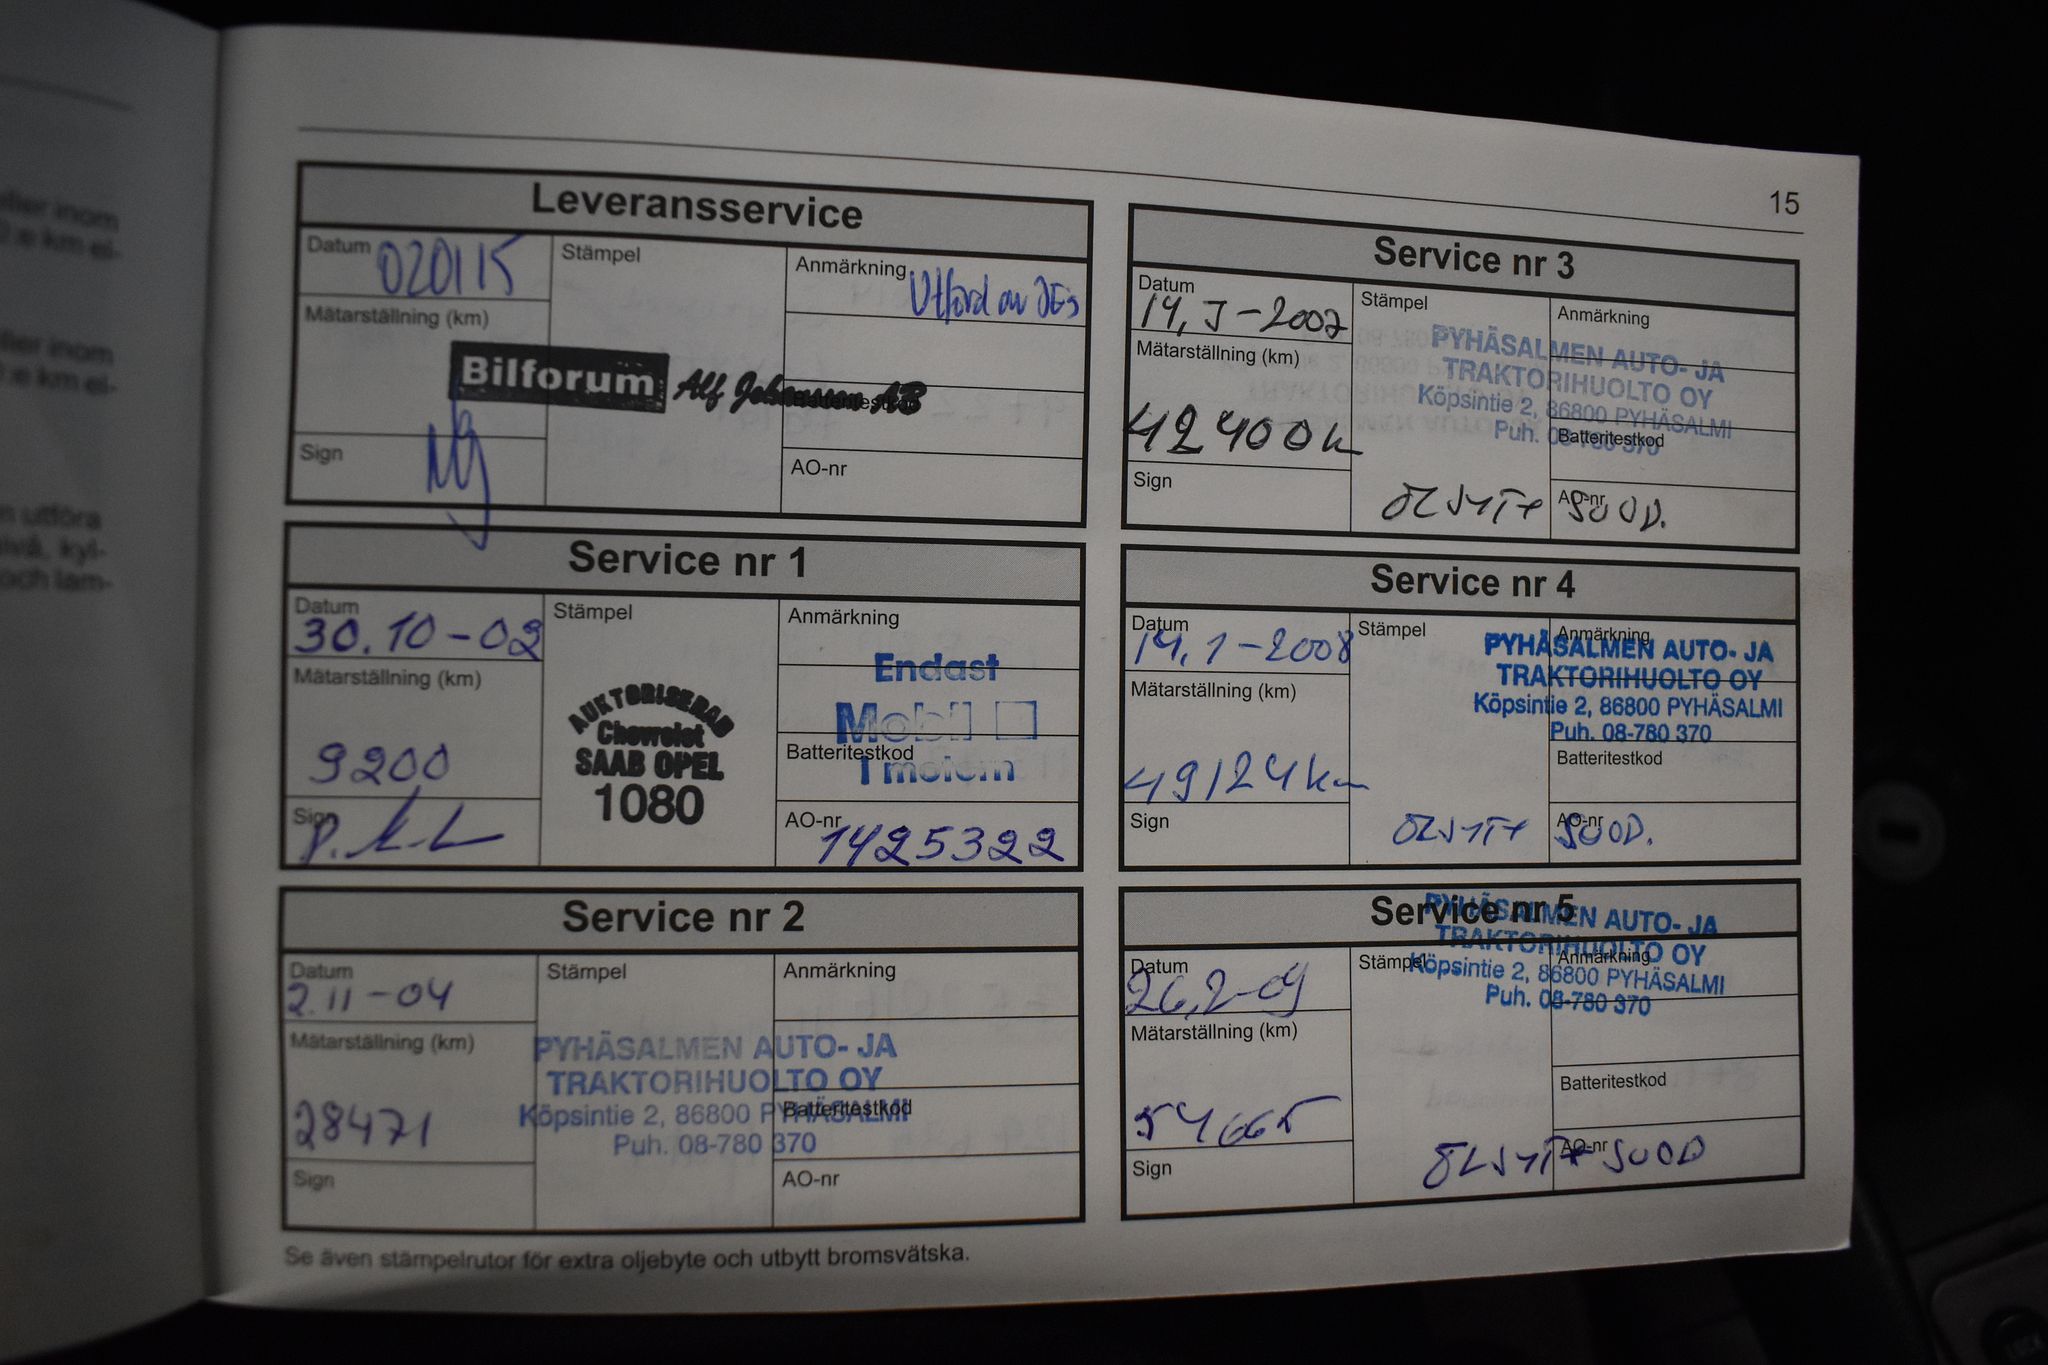 eller inom
15
Leveransservice
Datum 020115
Stämpel
Anmärkning Utförd av
Mätarställning (km)
Bilforum Alf Johansson AB
Batteritestkod
Sign
AO-nr
Service nr 1
Datum 30.10-02
Stämpel
Anmärkning
Mätarställning (km)
9200
AUKTORISERAD
Chevrolet
SAAB OPEL
1080
Endast
Mobil 1
Batteritestkod
Sign
AO-nr 1425322
Service nr 2
Datum 2.11-04
Stämpel
Anmärkning
Mätarställning (km)
28471
PYHÄSALMEN AUTO- JA
TRAKTORIHUOLTO OY
Köpsintie 2, 86800 PYHÄSALMI
Puh. 08-780 370
Batteritestkod
Sign
AO-nr
Se även stämpelrutor för extra oljebyte och utbytt bromsvätska.
Service nr 3
Datum
Stämpel
Anmärkning
Mätarställning (km)
42400
PYHÄSALMEN AUTO- JA
TRAKTORIHUOLTO OY
Köpsintie 2, 86800 PYHÄSALMI
Puh. 08-780 370
Batteritestkod
Sign
AO-nr
ÖLJYT+ SUOD.
Service nr 4
Datum 14.1-2008
Stämpel
Anmärkning
Mätarställning (km)
49124 km
PYHÄSALMEN AUTO- JA
TRAKTORIHUOLTO OY
Köpsintie 2, 86800 PYHÄSALMI
Puh. 08-780 370
Batteritestkod
Sign
AO-nr
ÖLJYT+ SUOD.
Service nr 5
Datum 26.2-09
Stämpel
Anmärkning
Mätarställning (km)
54665
PYHÄSALMEN AUTO- JA
TRAKTORIHUOLTO OY
Köpsintie 2, 86800 PYHÄSALMI
Puh. 08-780 370
Batteritestkod
Sign
AO-nr
ÖLJYT+ SUOD